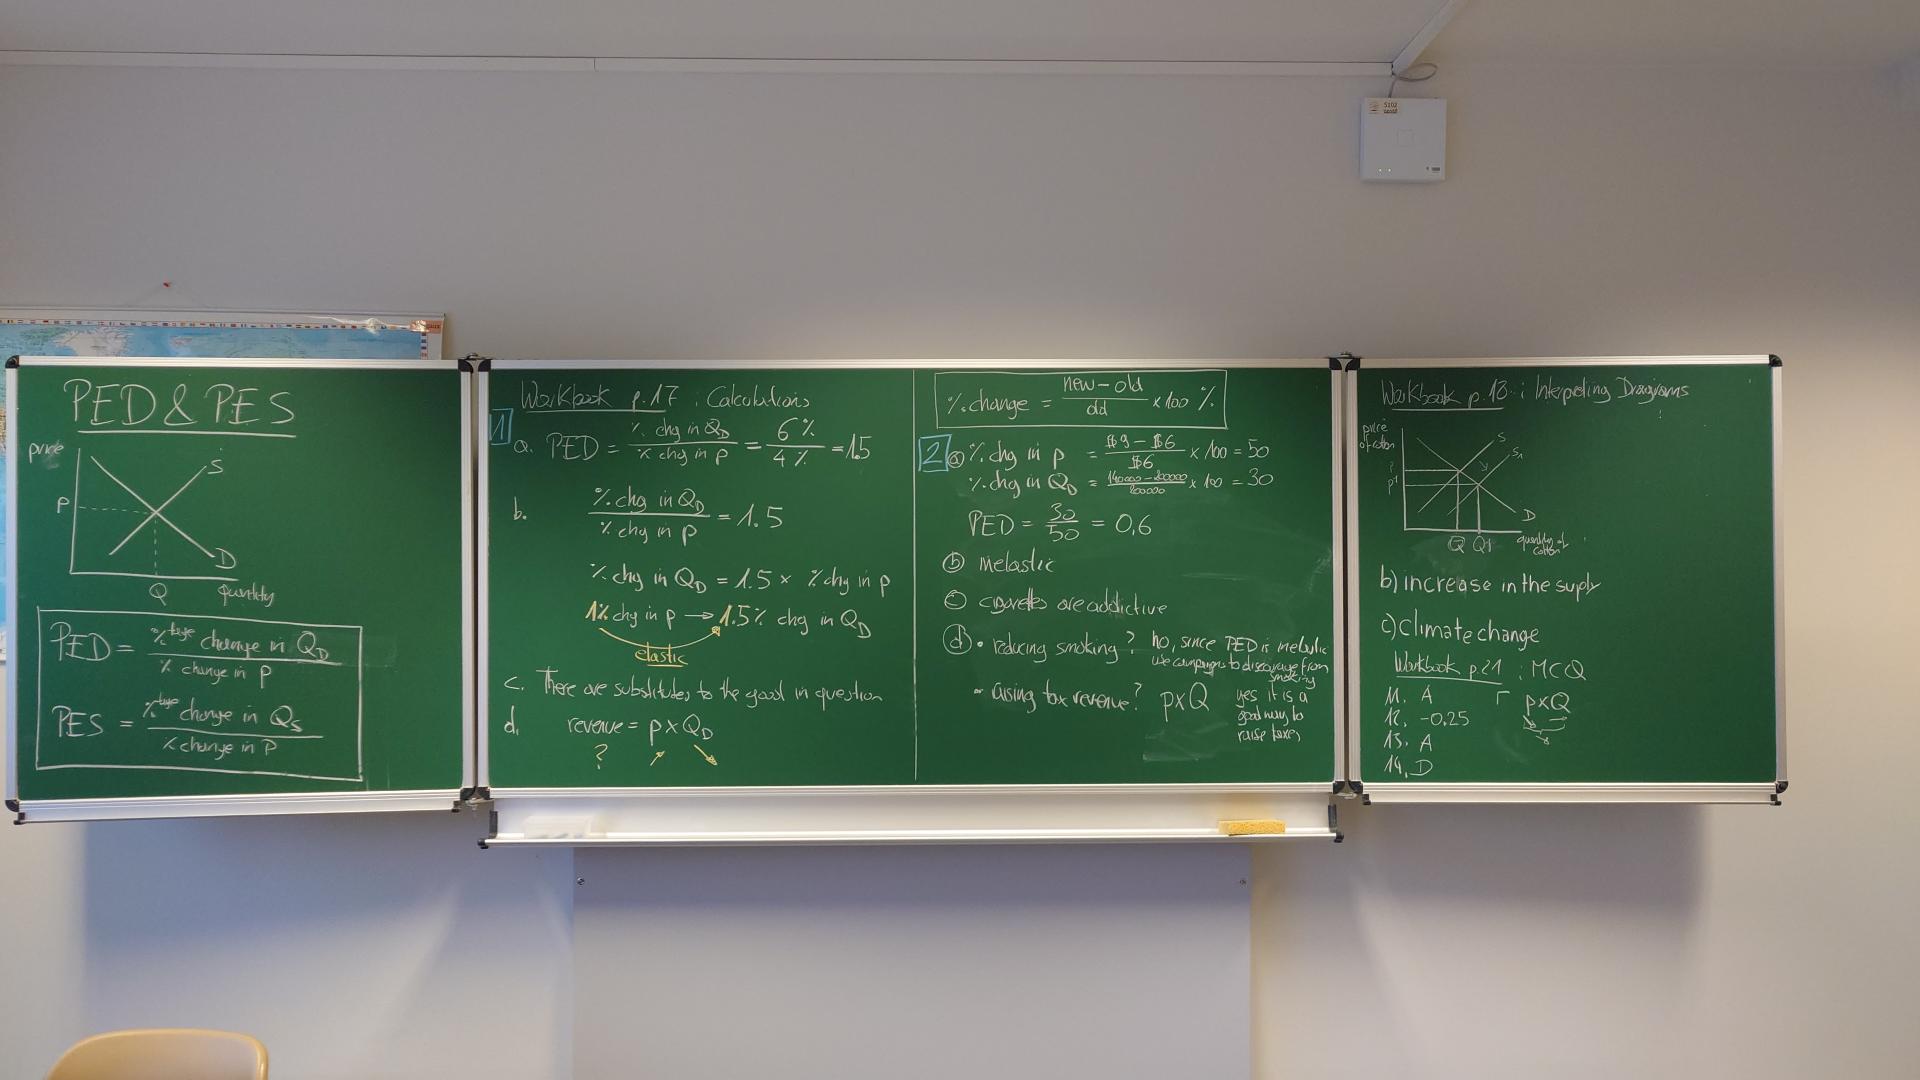 PED & PES
price
S
P
D
Q
quantity
PED = %tage change in QD / % change in P
PES = %tage change in QS / % change in P
Workbook p.17 : Calculations
1
a. PED = % chg in QD / % chg in p = 6% / 4% = 1.5
b. % chg in QD / % chg in p = 1.5
% chg in QD = 1.5 × % chg in p
1% chg in p → 1.5% chg in QD
elastic
c. There are substitutes to the good in question
d. revenue = p x QD
?
% change = new - old / old × 100 %
2
a % chg in p = $9 - $6 / $6 × 100 = 50
% chg in QD = 140000 - 200000 / 200000 × 100 = 30
PED = 30 / 50 = 0,6
b inelastic
c cigarettes are addictive
d • reducing smoking? no, since PED is inelastic
use campaigns to discourage from
smoking
• raising tax revenue? p x Q yes it is a
good way to
raise taxes
Workbook p. : Interpreting Diagrams
price
of cotton
S
S1
P1
D
Q Q1 quantity of
cotton
b) increase in the supply
c) Climate change
Workbook p.21 : MCQ
11. A
p x Q
12. -0.25
13. A
14. D
S102